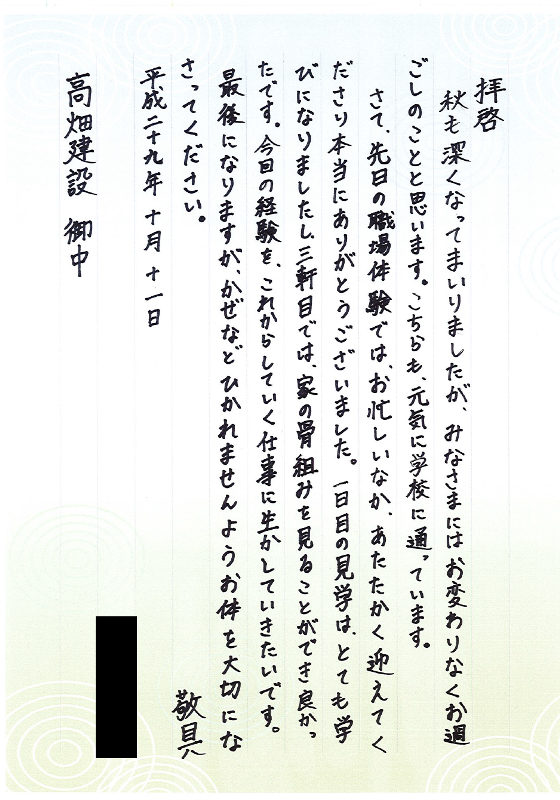 拝啓
秋も深くなってまいりましたが、みなさまにはお変わりなくお過
ごしのことと思います。こちらも、元気に学校に通っています。
さて、先日の職場体験では、お忙しいなか、あたたかく迎えてく
ださり本当にありがとうございました。一日目の見学は、とても学
びになりましたし、三軒目では、家の骨組みを見ることができ良かっ
たです。今回の経験を、これからしていく仕事に生かしていきたいです。
最後になりますが、かぜなどひかれませんようお体を大切にな
さってください。
敬具
平成二十九年 十月 十一日
高畑建設 御中